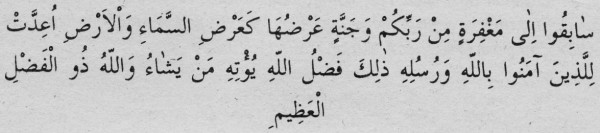 سَابِقُوا اِلٰى مَغْفِرَةٍ مِنْ رَبِّكُمْ وَجَنَّةٍ عَرْضُهَا كَعَرْضِ السَّمَاءِ وَالْاَرْضِ اُعِدَّتْ
لِلَّذِينَ آمَنُوا بِاللّٰهِ وَرُسُلِهِ ذٰلِكَ فَضْلُ اللّٰهِ يُؤْتِهِ مَنْ يَشَاءُ وَاللّٰهُ ذُو الْفَضْلِ
الْعَظِيمِ